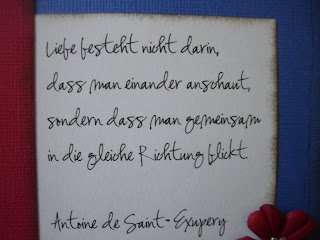 Liebe besteht nicht darin,
dass man einander anschaut,
sondern dass man gemeinsam
in die gleiche Richtung blickt
Antoine de Saint-Exupery